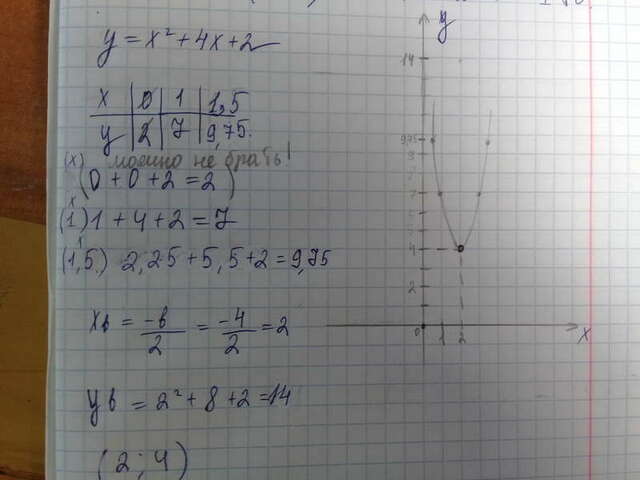 y = x² + 4x + 2
x | 0 | 1 | 1,5
y | 2 | 7 | 9,75.
(x) можно не брать!
(0 + 0 + 2 = 2)
x
(1) 1 + 4 + 2 = 7
(1,5) 2,25 + 5,5 + 2 = 9,75
xв = -в/2 = -4/2 = 2
yв = 2² + 8 + 2 = 14
(2; 4)
y
14
9,75
7
5
4
2
0
1
2
x